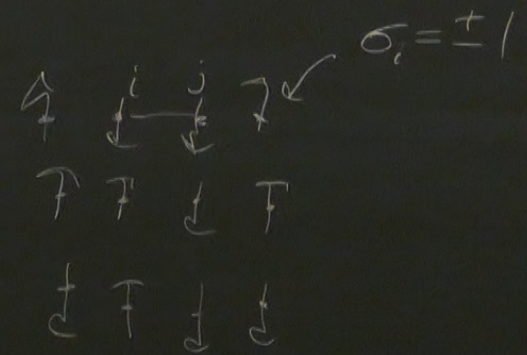 σᵢ = ± 1
i j